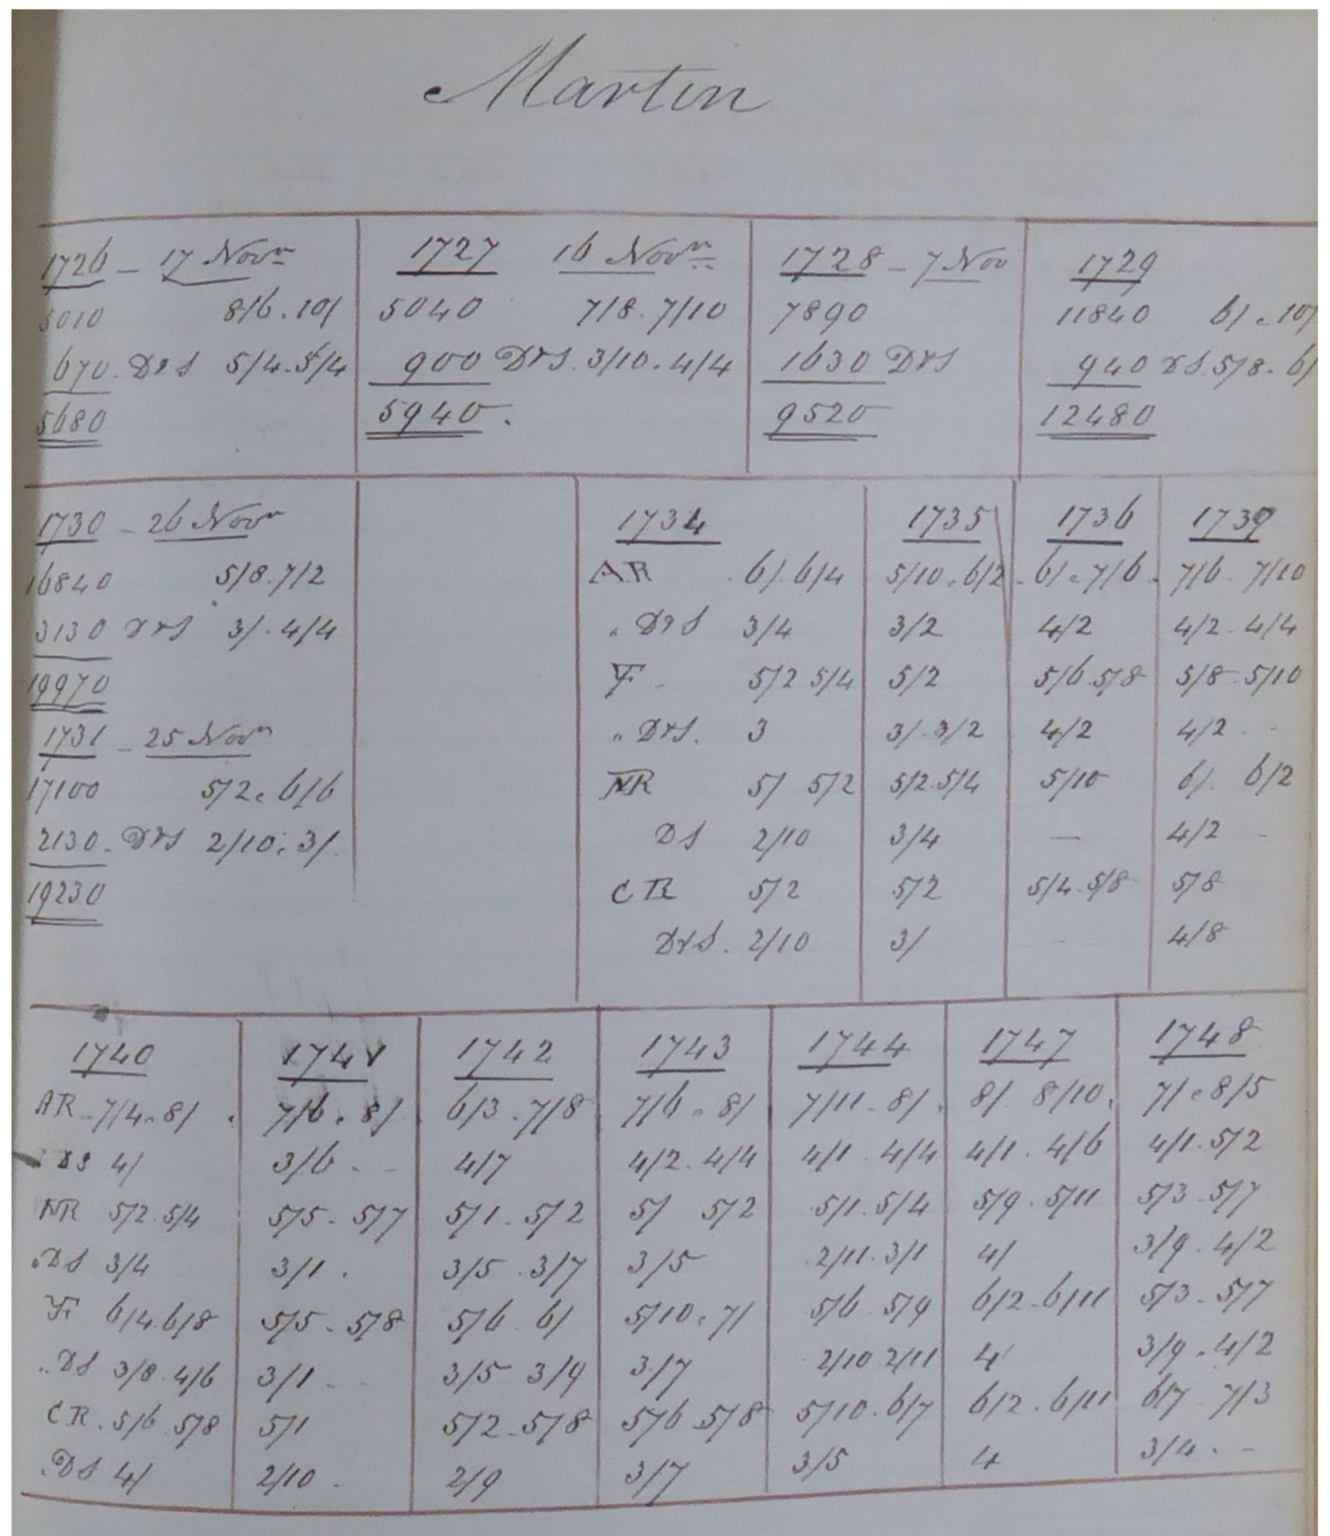 Martin
1726 - 17 Novr 1727 16 Novr 1728 - 7 Nov 1729
5010 8/6 . 10/ 5040 7/8 . 7/10 7890 11840 6/ . 10/
670 . DrS 5/4 . 5/4 900 DrS . 3/10 . 4/4 1630 DrS 940 DS . 5/8 . 6/
5680 5940 . 9520 12480
1730 - 26 Novr 1734 1735 1736 1739
16840 5/8 . 7/2 AR . 6/ . 6/4 5/10 . 6/2 - 6/ . 7/6 . 7/6 . 7/10
3130 DrS 3/ . 4/4 " DrS 3/4 3/2 4/2 4/2 . 4/4
19970 F - 5/2 5/4 5/2 5/6 . 5/8 5/8 . 5/10
1731 - 25 Novr " DrS . 3 3/ . 3/2 4/2 4/2 - -
17100 5/2 . 6/6 NR 5/ 5/2 5/2 . 5/4 5/10 6/ . 6/2
2130 . DrS 2/10 . 3/ . DS 2/10 3/4 - 4/2 -
19230 CR 5/2 5/2 5/4 . 5/8 5/8
DrS . 2/10 3/ - 4/8
1740 1741 1742 1743 1744 1747 1748
AR - 7/4 . 8/ . 7/6 . 8/ . 6/3 . 7/8 . 7/6 . 8/ 7/11 - 8/ . 8/ 8/10 . 7/ . 8/5
DS 4/ 3/6 . - 4/7 4/2 . 4/4 4/1 . 4/4 4/1 . 4/6 4/1 . 5/2
NR 5/2 . 5/4 5/5 - 5/7 5/1 - 5/2 5/ 5/2 5/1 . 5/4 5/9 . 5/11 5/3 - 5/7
"DS 3/4 3/1 . 3/5 . 3/7 3/5 2/11 . 3/1 4/ 3/9 . 4/2
F 6/4 . 6/8 5/5 - 5/8 5/6 . 6/ 5/10 . 7/ 5/6 . 5/9 6/2 - 6/11 5/3 - 5/7
"DS 3/8 . 4/6 3/1 - - 3/5 3/9 3/7 2/10 2/11 4/ 3/9 . 4/2
CR . 5/6 . 5/8 5/1 5/2 . 5/8 5/6 5/8 5/10 . 6/7 6/2 . 6/11 6/7 7/3
.DS 4/ 2/10 . 2/9 3/7 3/5 4 3/4 . -